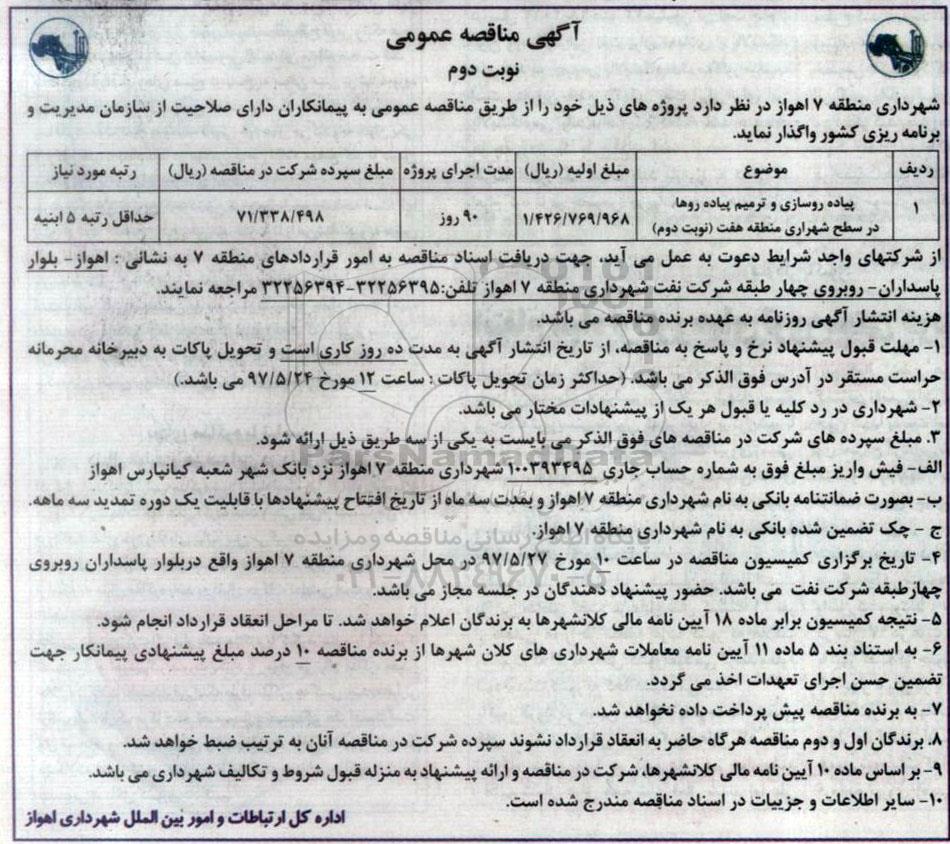 آگهی مناقصه عمومی
نوبت دوم
شهرداری منطقه ۷ اهواز در نظر دارد پروژه های ذیل خود را از طریق مناقصه عمومی به پیمانکاران دارای صلاحیت از سازمان مدیریت و
برنامه ریزی کشور واگذار نماید.
ردیف موضوع مبلغ اولیه (ریال) مدت اجرای پروژه مبلغ سپرده شرکت در مناقصه (ریال) رتبه مورد نیاز
۱ پیاده روسازی و ترمیم پیاده روها، ۱/۴۲۶/۷۶۹/۹۶۸ ۹۰ روز ۷۱/۳۳۸/۴۹۸ حداقل رتبه ۵ ابنیه
در سطح شهراری منطقه هفت (نوبت دوم)
از شرکتهای واجد شرایط دعوت به عمل می آید، جهت دریافت اسناد مناقصه به امور قراردادهای منطقه ۷ به نشانی : اهواز- بلوار
پاسداران- روبروی چهار طبقه شرکت نفت شهرداری منطقه ۷ اهواز تلفن:۳۲۲۵۶۳۹۵-۳۲۲۵۶۳۹۴ مراجعه نمایند.
هزینه انتشار آگهی روزنامه به عهده برنده مناقصه می باشد.
۱- مهلت قبول پیشنهاد نرخ و پاسخ به مناقصه، از تاریخ انتشار آگهی به مدت ده روز کاری است و تحویل پاکات به دبیرخانه محرمانه
حراست مستقر در آدرس فوق الذکر می باشد. (حداکثر زمان تحویل پاکات : ساعت ۱۲ مورخ ۹۷/۵/۲۴ می باشد.)
۲- شهرداری در رد کلیه یا قبول هر یک از پیشنهادات مختار می باشد.
۳. مبلغ سپرده های شرکت در مناقصه های فوق الذکر می بایست به یکی از سه طریق ذیل ارائه شود.
الف- فیش واریز مبلغ فوق به شماره حساب جاری ۱۰۰۳۹۳۴۹۵ شهرداری منطقه ۷ اهواز نزد بانک شهر شعبه کیانپارس اهواز
ب- بصورت ضمانتنامه بانکی به نام شهرداری منطقه ۷ اهواز و بمدت سه ماه از تاریخ افتتاح پیشنهادها با قابلیت یک دوره تمدید سه ماهه.
ج - چک تضمین شده بانکی به نام شهرداری منطقه ۷ اهواز.
۴- تاریخ برگزاری کمیسیون مناقصه در ساعت ۱۰ مورخ ۹۷/۵/۲۷ در محل شهرداری منطقه ۷ اهواز واقع دربلوار پاسداران روبروی
چهارطبقه شرکت نفت می باشد. حضور پیشنهاد دهندگان در جلسه مجاز می باشد.
۵- نتیجه کمیسیون برابر ماده ۱۸ آیین نامه مالی کلانشهرها به برندگان اعلام خواهد شد. تا مراحل انعقاد قرارداد انجام شود.
۶- به استناد بند ۵ ماده ۱۱ آیین نامه معاملات شهرداری های کلان شهرها از برنده مناقصه ۱۰ درصد مبلغ پیشنهادی پیمانکار جهت
تضمین حسن اجرای تعهدات اخذ می گردد.
۷- به برنده مناقصه پیش پرداخت داده نخواهد شد.
۸. برندگان اول و دوم مناقصه هرگاه حاضر به انعقاد قرارداد نشوند سپرده شرکت در مناقصه آنان به ترتیب ضبط خواهد شد.
۹- بر اساس ماده ۱۰ آیین نامه مالی کلانشهرها، شرکت در مناقصه و ارائه پیشنهاد به منزله قبول شروط و تکالیف شهرداری می باشد.
۱۰- سایر اطلاعات و جزییات در اسناد مناقصه مندرج شده است.
اداره کل ارتباطات و امور بین الملل شهرداری اهواز
ParsNamadData
پایگاه اطلاع رسانی مناقصه و مزایده
۰۲۱-۸۸۳۴۹۶۷۰-۵